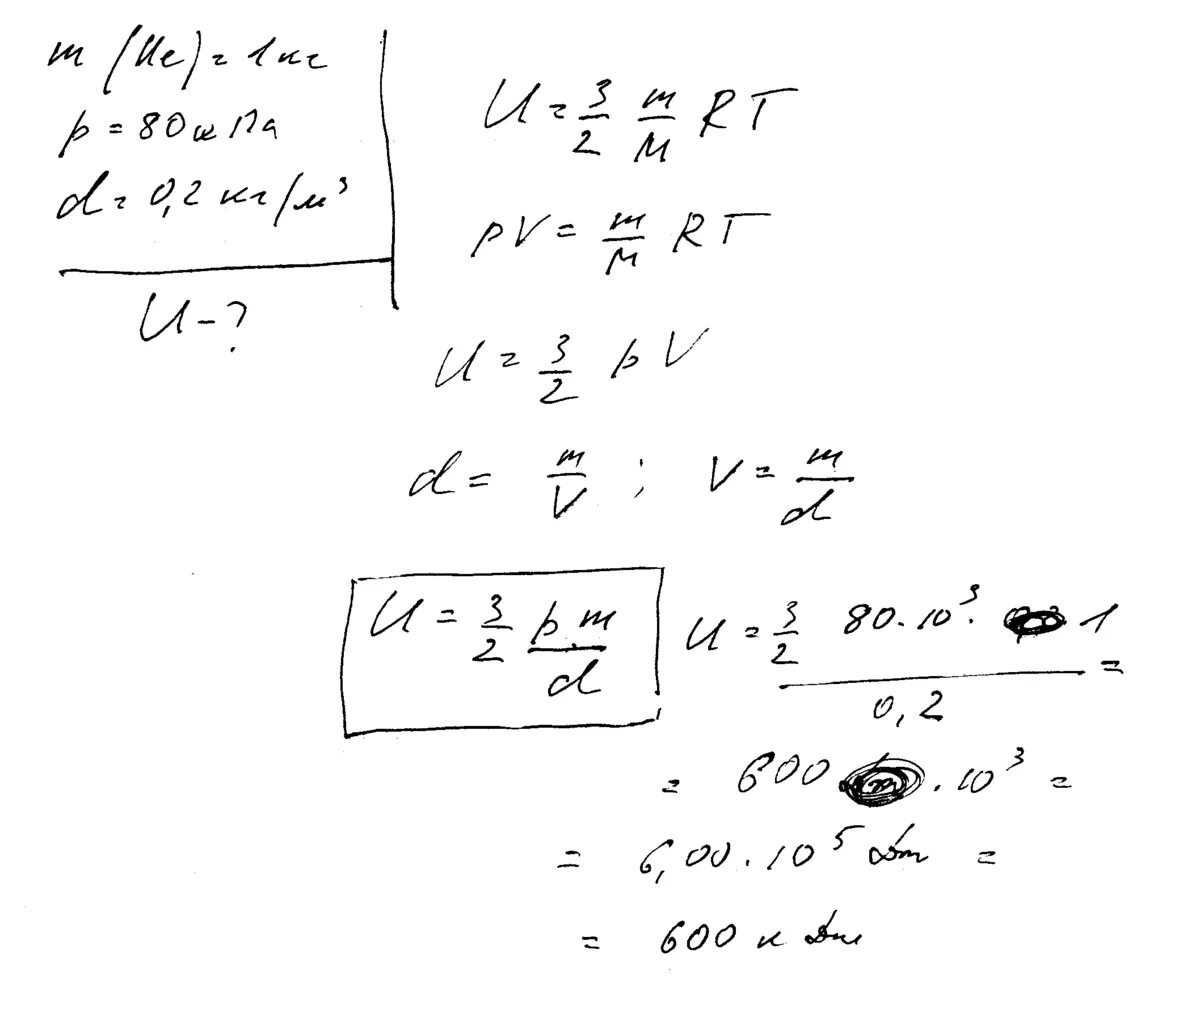 m (He) = 1 кг
p = 80 кПа
d = 0,2 кг/м³
U - ?
U = 3/2 m/M RT
pV = m/M RT
U = 3/2 pV
d = m/V ; V = m/d
U = 3/2 p·m/d
U = 3/2 80·10³· 1 / 0,2 =
= 600 ·10³ =
= 6,00·10⁵ Дж =
= 600 кДж